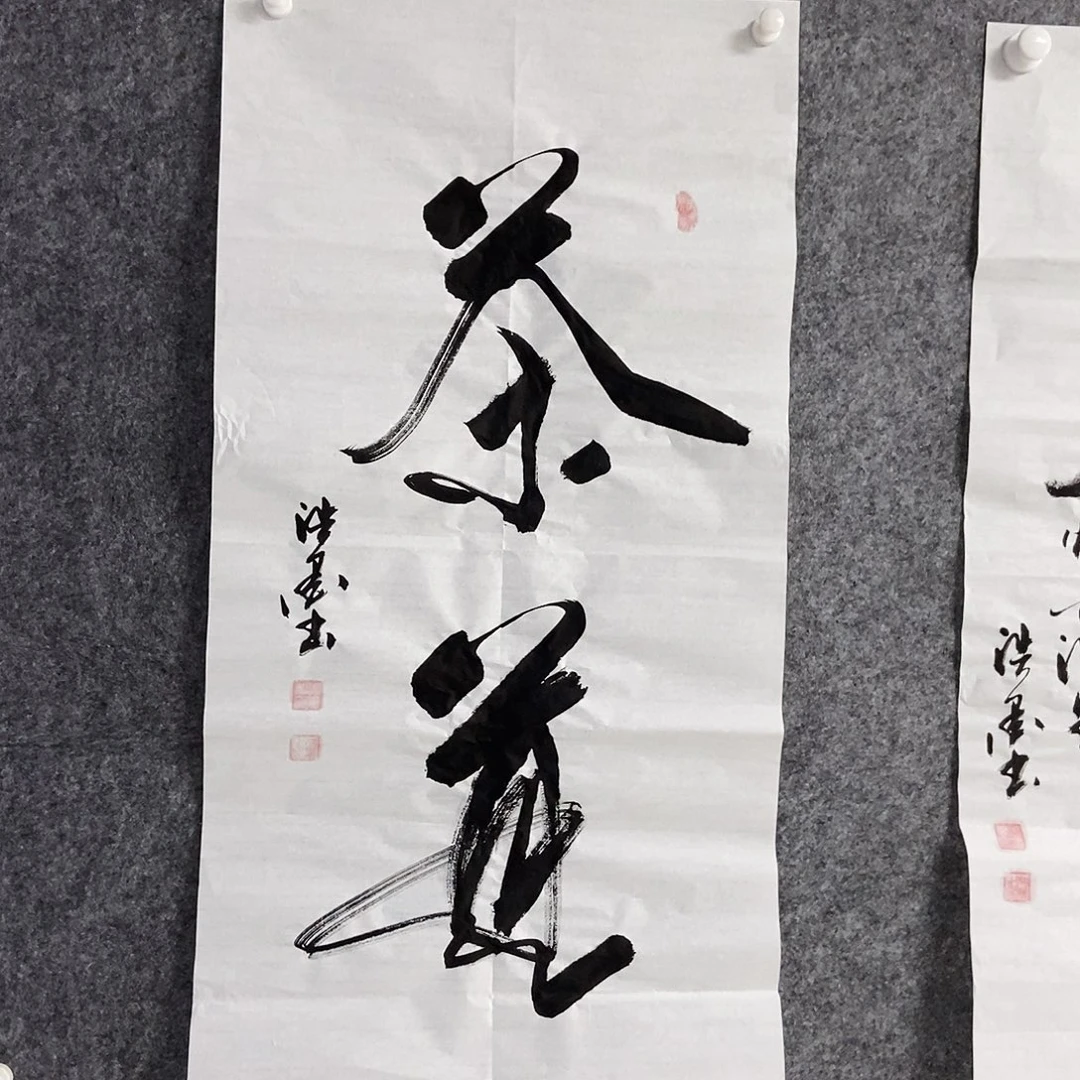 茶道
浩墨书
浩墨书